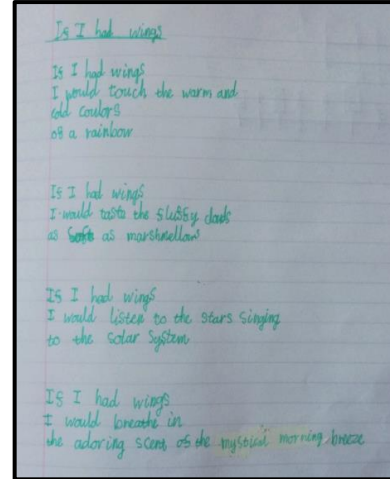 If I had wings
If I had wings
I would touch the warm and
cold coulors
of a rainbow
If I had wings
I would taste the fluffy clouds
as soft as marshmellows
If I had wings
I would listen to the stars singing
to the solar system
If I had wings
I would breathe in
the adoring scent of the mystical morning breeze